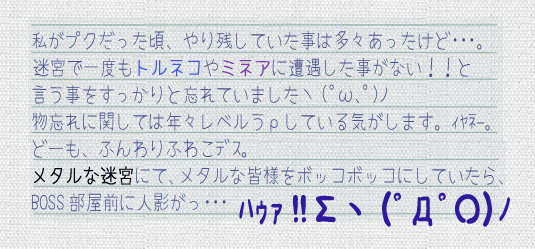 私がプクだった頃、やり残していた事は多々あったけど・・・。
迷宮で一度もトルネコやミネアに遭遇した事がない！！と
言う事をすっかりと忘れていましたヽ(ﾟω､ﾟ)ﾉ
物忘れに関しては年々レベルうｐしている気がします。ｲﾔﾈｰ。
どーも、ふんわりふわこデス。
メタルな迷宮にて、メタルな皆様をボッコボッコにしていたら、
BOSS 部屋前に人影がっ・・・ ハウァ!!Σヽ(ﾟДﾟ○)ﾉ